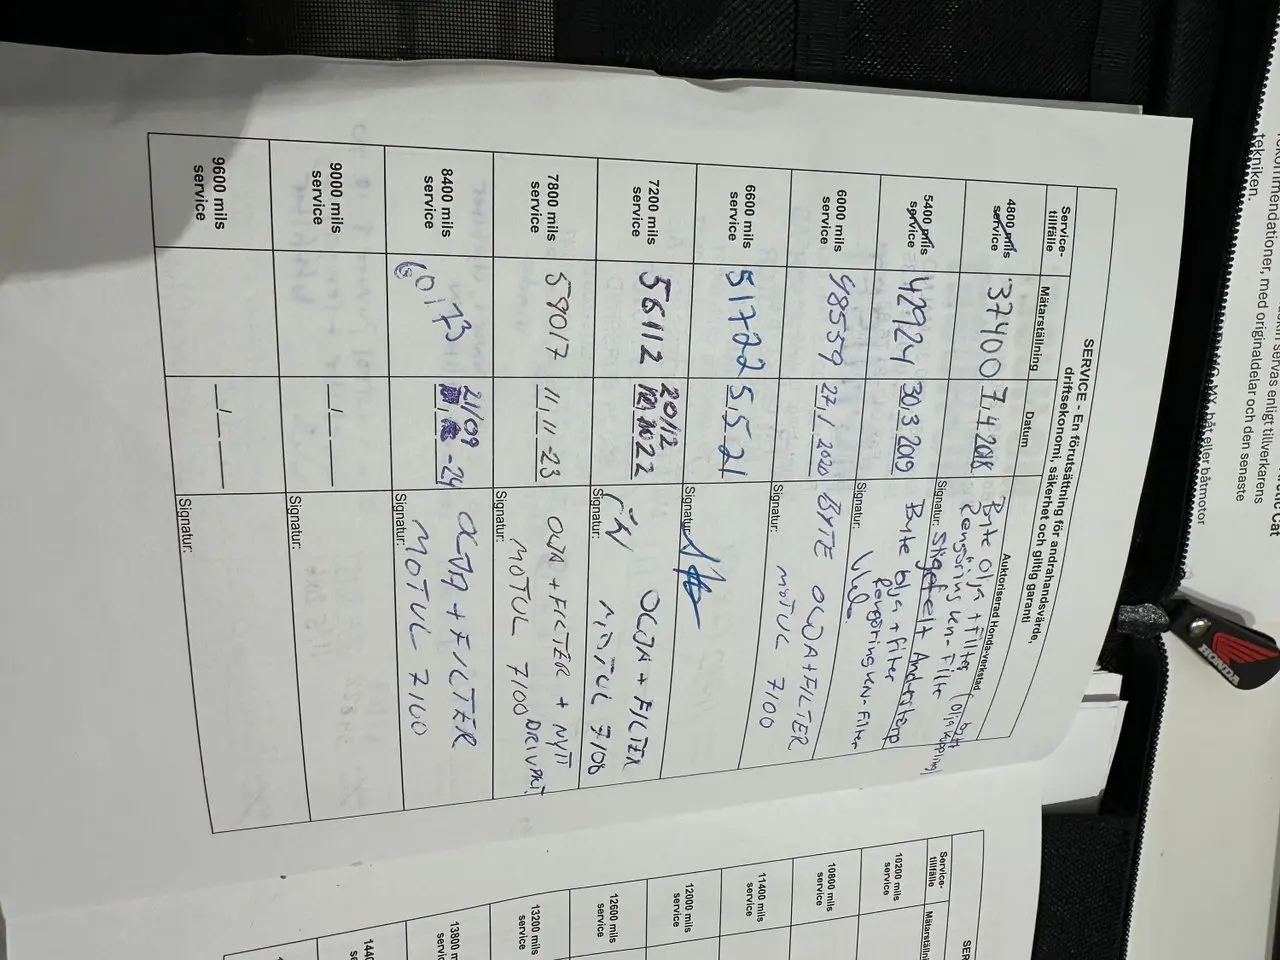 SERVICE - En förutsättning för andrahandsvärde,
driftsekonomi, säkerhet och giltig garanti
Service-
tillfälle
Mätarställning
Datum
Auktoriserad Honda-verkstad
4800 mils
service
37400
7.4 2018
Byte olja + Filter
Rengöring kn-Filter
Signatur:
5400 mils
service
42924
30.3 2019
Byte olja + filter
Rengöring KN-Filter
Signatur:
6000 mils
service
48559
27.1 2020
BYTE OLJA+FILTER
MOTUL 7100
Signatur:
6600 mils
service
51722
5.5.21
Signatur:
7200 mils
service
56112
20/12
22
OLJA + FILTER
MOTUL 7100
Signatur:
7800 mils
service
59017
11.11-23
OLJA + FILTER + NYTT
MOTUL 7100
Signatur:
8400 mils
service
60173
21/09
-24
OLJA + FILTER
MOTUL 7100
Signatur:
9000 mils
service
Signatur:
9600 mils
service
Signatur:
Service-
tillfälle
10200 mils
service
10800 mils
service
11400 mils
service
12000 mils
service
12600 mils
service
13200 mils
service
rekommendationer, med originaldelar och den senaste
tekniken.
HONDA